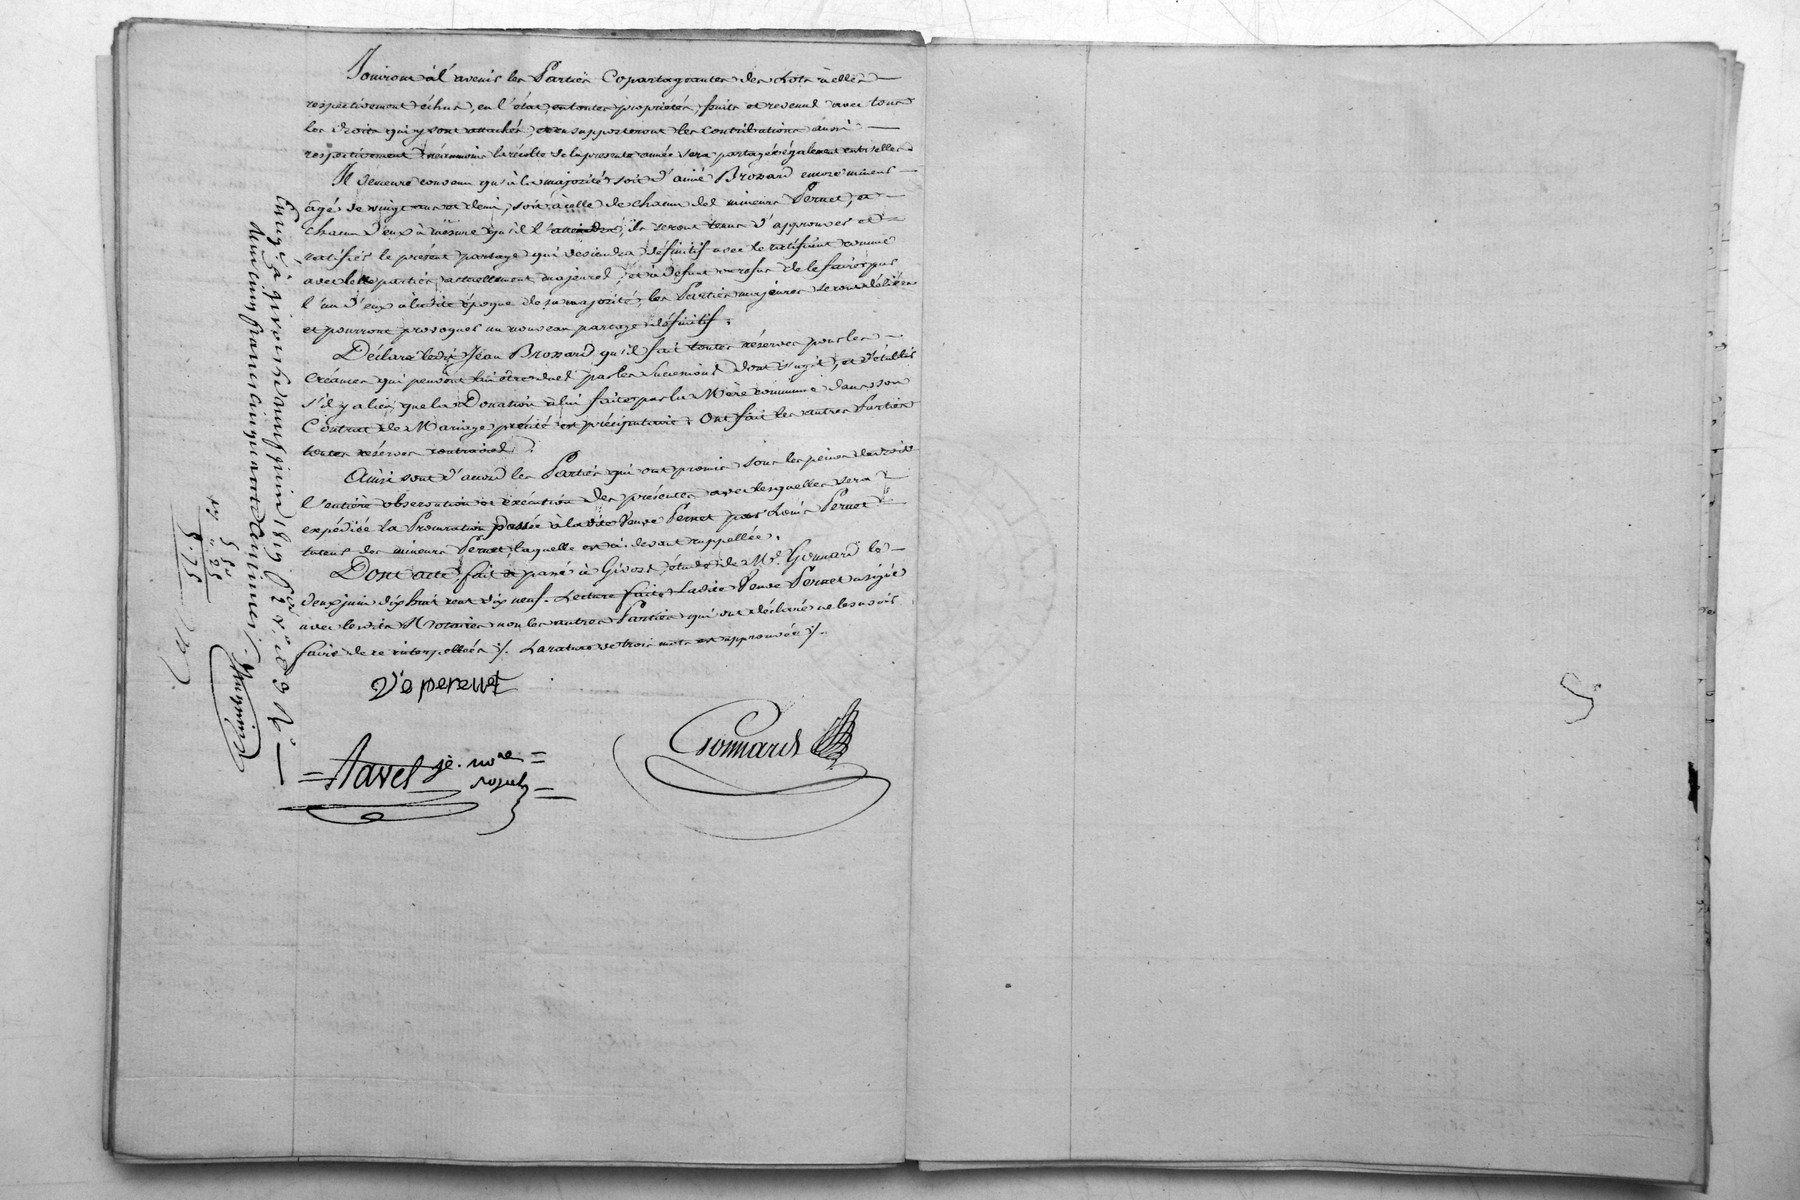 Jouiront à l'avenir les Parties Copartageantes des Lots à elles
respectivement échus, en l'état, en toutes propriétés, fruits et revenus avec tous
les droits qui y sont attachés, et en supporteront les contributions aussi
respectivement néanmoins la récolte de la presente année sera partagée également entr'elles.
Il demeure convenu qu'à la majorité soit d'aimé Brossard encore mineur
âgé de vingt ans et demi, soit à celle de chacun des mineurs Pernet, et
chacun d'eux à mesure qu'il l'atteindra, ils seront tenus d'approuver et
ratifier le présent partage qui deviendra définitif avec le ratifiant comme
avec les parties actuellement majeures, et à défaut ou refus de le faire par
l'un d'eux à ladite époque de sa majorité, les Parties majeures seront déliées
et pourront provoquer un nouveau partage définitif.
Déclare ledit Jean Brossard qu'il fait toutes réserves pour les
créances qui peuvent lui être dues par les Successions dont s'agit, et d'établir
s'il y a lieu que la Donation à lui faite par la Mère commune dans son
Contrat de Mariage précité est préciputaire. Ont fait les autres Parties
toutes réserves contraires.
Ainsi sont d'accord les Parties qui ont promis sous les peines de droit
l'entière observation et exécution des présentes avec lesquelles sera
expédiée la Procuration passée à la dite Veuve Pernet par Louis Pernet
tuteur des mineurs Pernet, laquelle est ci-devant rappellée.
Dont acte, fait et passé à Givors, étude de Me. Gonnard le
deux juin dix huit cent dix neuf. Lecture faite Ladite Veuve Pernet a signé
avec lesdits Notaires non les autres Parties qui ont déclaré ne le savoir
faire de ce interpellées ./. La rature de trois mots est approuvée ./.
Ve pernet
Gonnard
Favel je. nore
royal
Enrg. à givors le neuf juin 1819
5
5. 25